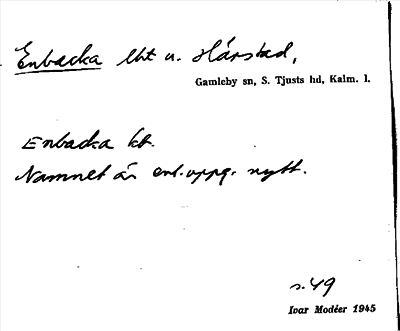 Enbacka lht u. Hårstad,
Gamleby sn, S. Tjusts hd, Kalm. l.
Enbacka kt.
Namnet är enl. uppg. nytt.
s. 49
Ivar Modéer 1945